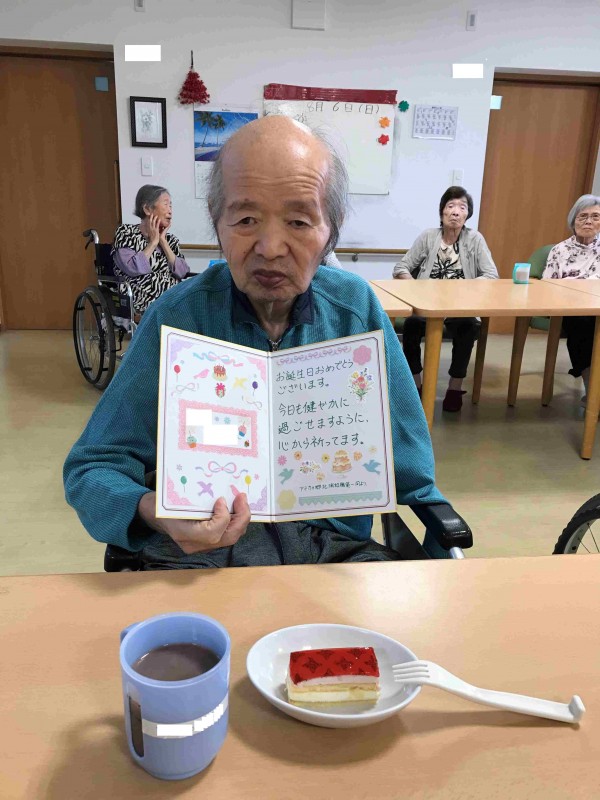 8月6日(日)
お誕生日おめでとう
ございます。
今日も健やかに
過ごせますように、
心から祈ってます。